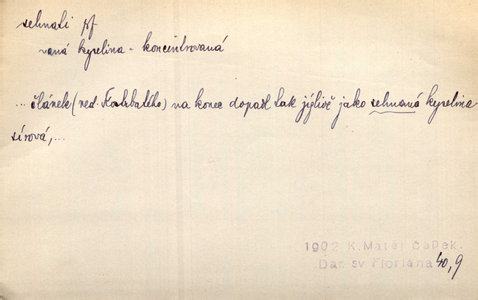 sehnati pf
naná kyselina - koncentrovaná
... článek (red. Hrabětě) na konec dopadl tak jízlivě jako sehnaná kyselina
sírová, ...
1902 K. Matěj Čapek.
Dar sv Floriána 40, 9